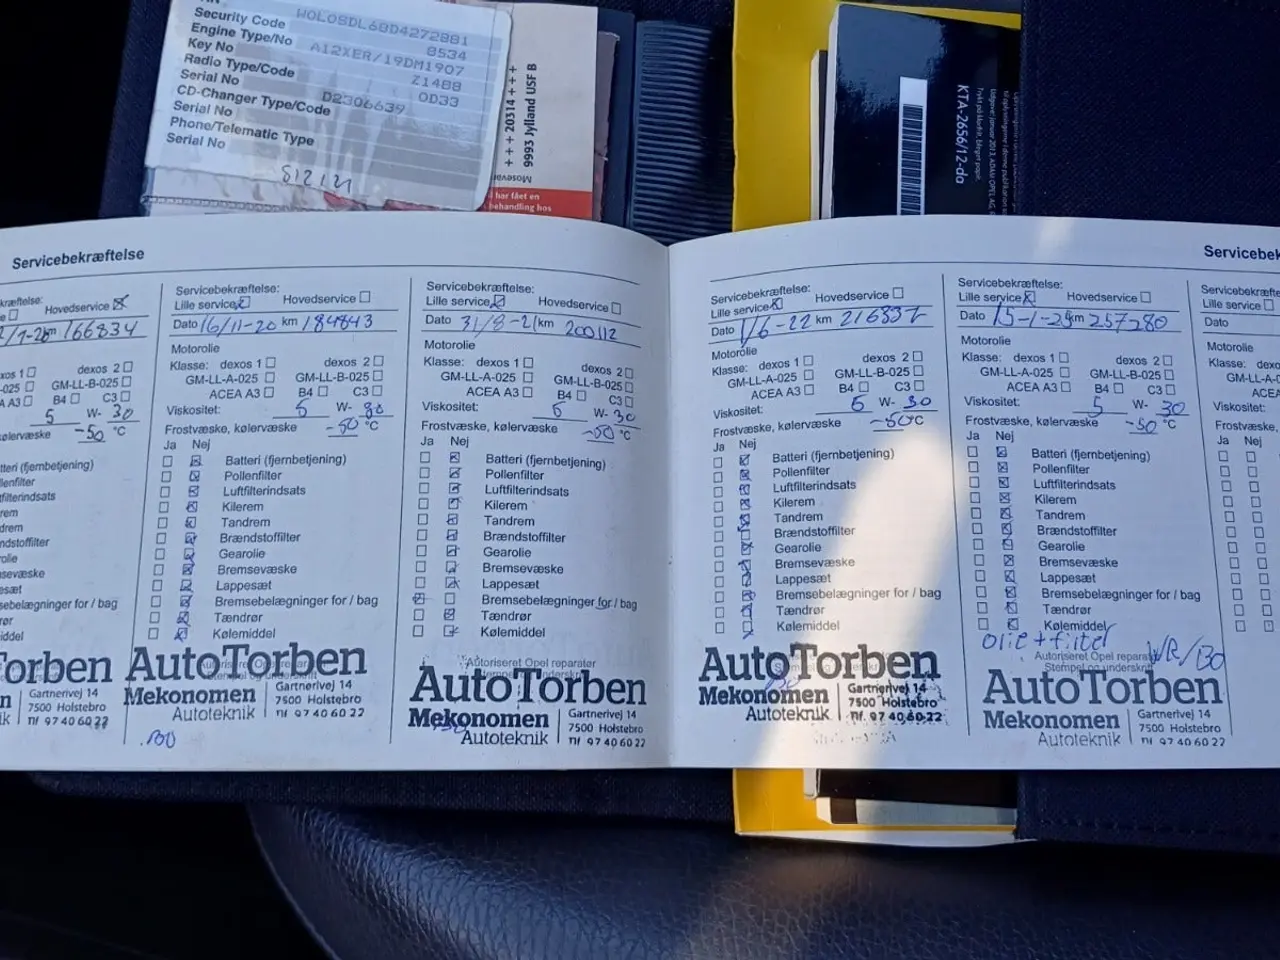 Security Code
W0L0SDL68D4272881
Engine Type/No
8534
Key No
A12XER/19DM1907
Radio Type/Code
Z1488
Serial No
0D33
CD-Changer Type/Code
D2306639
Serial No
Phone/Telematic Type
Serial No
S12121
+ + + 20314 + + +
9993 Jylland USF B
har fået en
behandling hos
KTA-2656/12-da
Servicebekræftelse
Hovedservice
km 166834
dexos 2
GM-LL-B-025
B4 C3
5 W- 30
-50 °C
Batteri (fjernbetjening)
Servicebekræftelse:
Lille service Hovedservice
Dato 16/11-20 km 184843
Motorolie
Klasse: dexos 1 dexos 2
GM-LL-A-025 GM-LL-B-025
ACEA A3 B4 C3
Viskositet: 5 W- 30
Frostvæske, kølervæske -50 °C
Ja Nej
Batteri (fjernbetjening)
Pollenfilter
Luftfilterindsats
Kilerem
Tandrem
Brændstoffilter
Gearolie
Bremsevæske
Lappesæt
Bremsebelægninger for / bag
Tændrør
Kølemiddel
AutoTorben
Mekonomen
Autoteknik
Gartnerivej 14
7500 Holstebro
Tlf 97 40 60 22
BO
Servicebekræftelse:
Lille service Hovedservice
Dato 31/8-21 km 200112
Motorolie
Klasse: dexos 1 dexos 2
GM-LL-A-025 GM-LL-B-025
ACEA A3 B4 C3
Viskositet: 5 W- 30
Frostvæske, kølervæske -50 °C
Ja Nej
Batteri (fjernbetjening)
Pollenfilter
Luftfilterindsats
Kilerem
Tandrem
Brændstoffilter
Gearolie
Bremsevæske
Lappesæt
Bremsebelægninger for / bag
Tændrør
Kølemiddel
Autoriseret Opel reparatør
AutoTorben
Mekonomen
Autoteknik
Gartnerivej 14
7500 Holstebro
Tlf 97 40 60 22
Servicebekræftelse:
Lille service Hovedservice
Dato 1/6-22 km 216337
Motorolie
Klasse: dexos 1 dexos 2
GM-LL-A-025 GM-LL-B-025
ACEA A3 B4 C3
Viskositet: 5 W- 30
Frostvæske, kølervæske -50°C
Ja Nej
Batteri (fjernbetjening)
Pollenfilter
Luftfilterindsats
Kilerem
Tandrem
Brændstoffilter
Gearolie
Bremsevæske
Lappesæt
Bremsebelægninger for / bag
Tændrør
Kølemiddel
AutoTorben
Mekonomen
Autoteknik
Gartnerivej 14
7500 Holstebro
Tlf. 97 40 60 22
Servicebekræftelse:
Lille service Hovedservice
Dato 15-1-25 km 257280
Motorolie
Klasse: dexos 1 dexos 2
GM-LL-A-025 GM-LL-B-025
ACEA A3 B4 C3
Viskositet: 5 W- 30
Frostvæske, kølervæske -50 °C
Ja Nej
Batteri (fjernbetjening)
Pollenfilter
Luftfilterindsats
Kilerem
Tandrem
Brændstoffilter
Gearolie
Bremsevæske
Lappesæt
Bremsebelægninger for / bag
Tændrør
Kølemiddel
Olie + filter
WR/BO
Autoriseret Opel reparatør
Stempel og underskrift
AutoTorben
Mekonomen
Autoteknik
Gartnerivej 14
7500 Holstebro
Tlf 97 40 60 22
Lille service
Dato
Motorolie
Klasse:
Viskositet:
Ja Nej